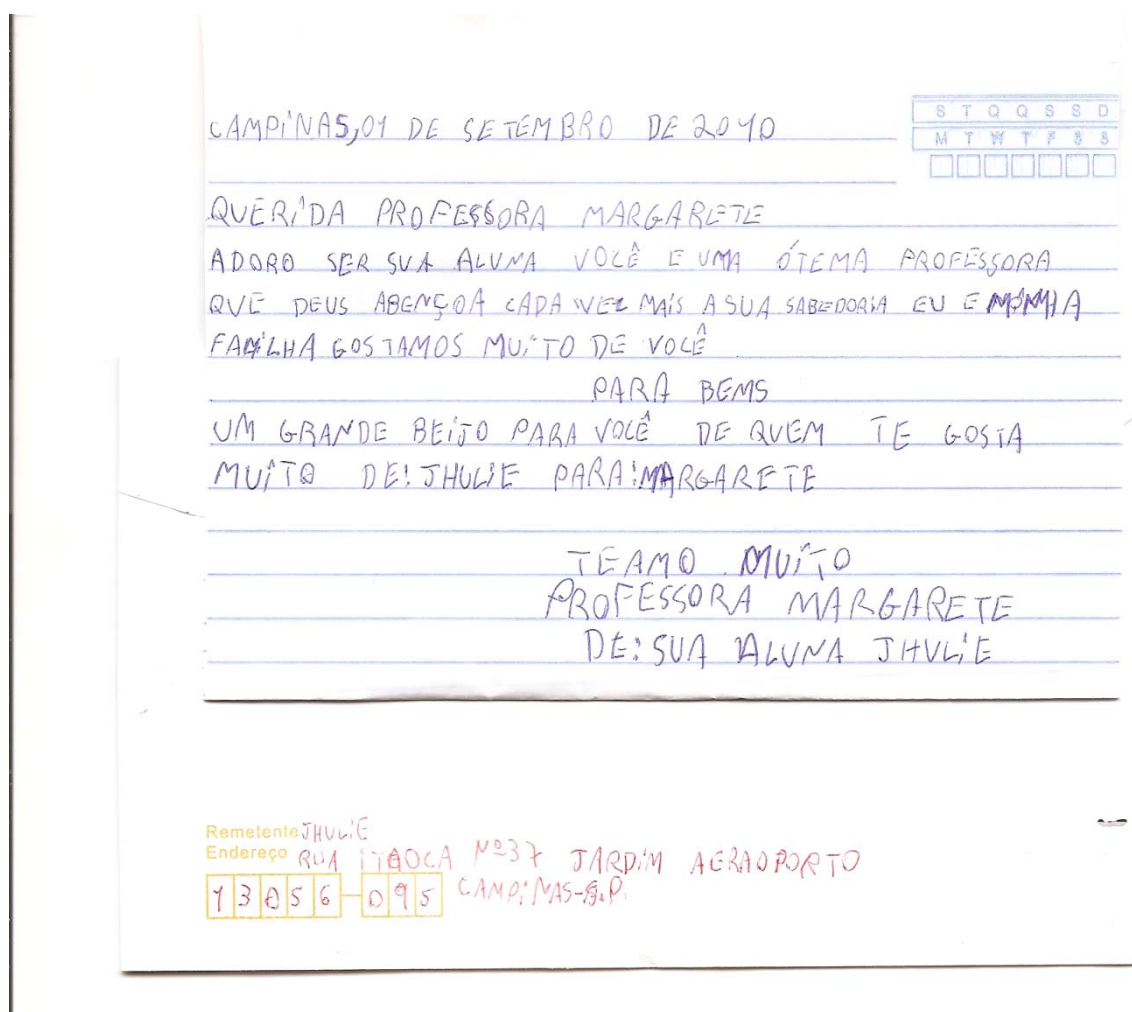 CAMPINAS, 01 DE SETEMBRO DE 2010
S T Q Q S S D
M T W T F S S
QUERIDA PROFESSORA MARGARETE
ADORO SER SUA ALUNA VOCÊ E UMA ÓTEMA PROFESSORA
QUE DEUS ABENÇOA CADA VEZ MAIS A SUA SABEDORIA EU E
FAMILHA GOSTAMOS MUITO DE VOCÊ
PARA BEMS
UM GRANDE BEIJO PARA VOCÊ DE QUEM TE GOSTA
MUITO DE: JHULIE PARA: MARGARETE
TEAMO MUITO
PROFESSORA MARGARETE
DE: SUA ALUNA JHULIE
Remetente JHULIE
Endereço RUA ITAOCA Nº37 JARDIM AERAOPORTO
13056-095 CAMPINAS-S.P.